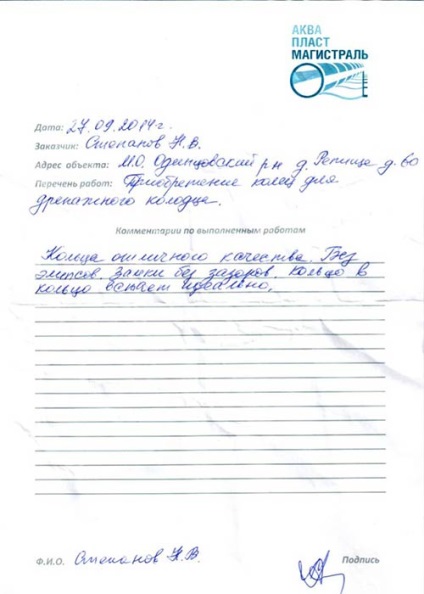 АКВА
ПЛАСТ
МАГИСТРАЛЬ
Дата: 27.09.2014г.
Заказчик: Степанов Н.В.
Адрес объекта: М.О. Одинцовский р-н д. Репище д.80
Перечень работ: Приобретение колец для
дренажного колодца.
Комментарии по выполненным работам
Кольца отличного качества. Без
эллипсов. Замки без зазоров. Кольцо в
кольцо встает идеально.
Ф.И.О. Степанов Н.В.
Подпись